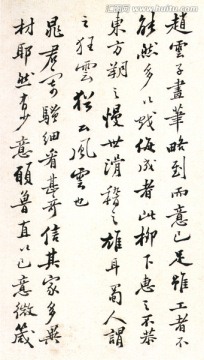 趙雲子畫筆略到而意已足雖工者不
能然多以戲侮成者此柳下惠之不恭
東方朔之慢世滑稽之雄耳蜀人謂
之狂雲猶云風雲也
晁君寄驥細看甚奇信其家多異
材耶然有少意願魯直以己意微箴